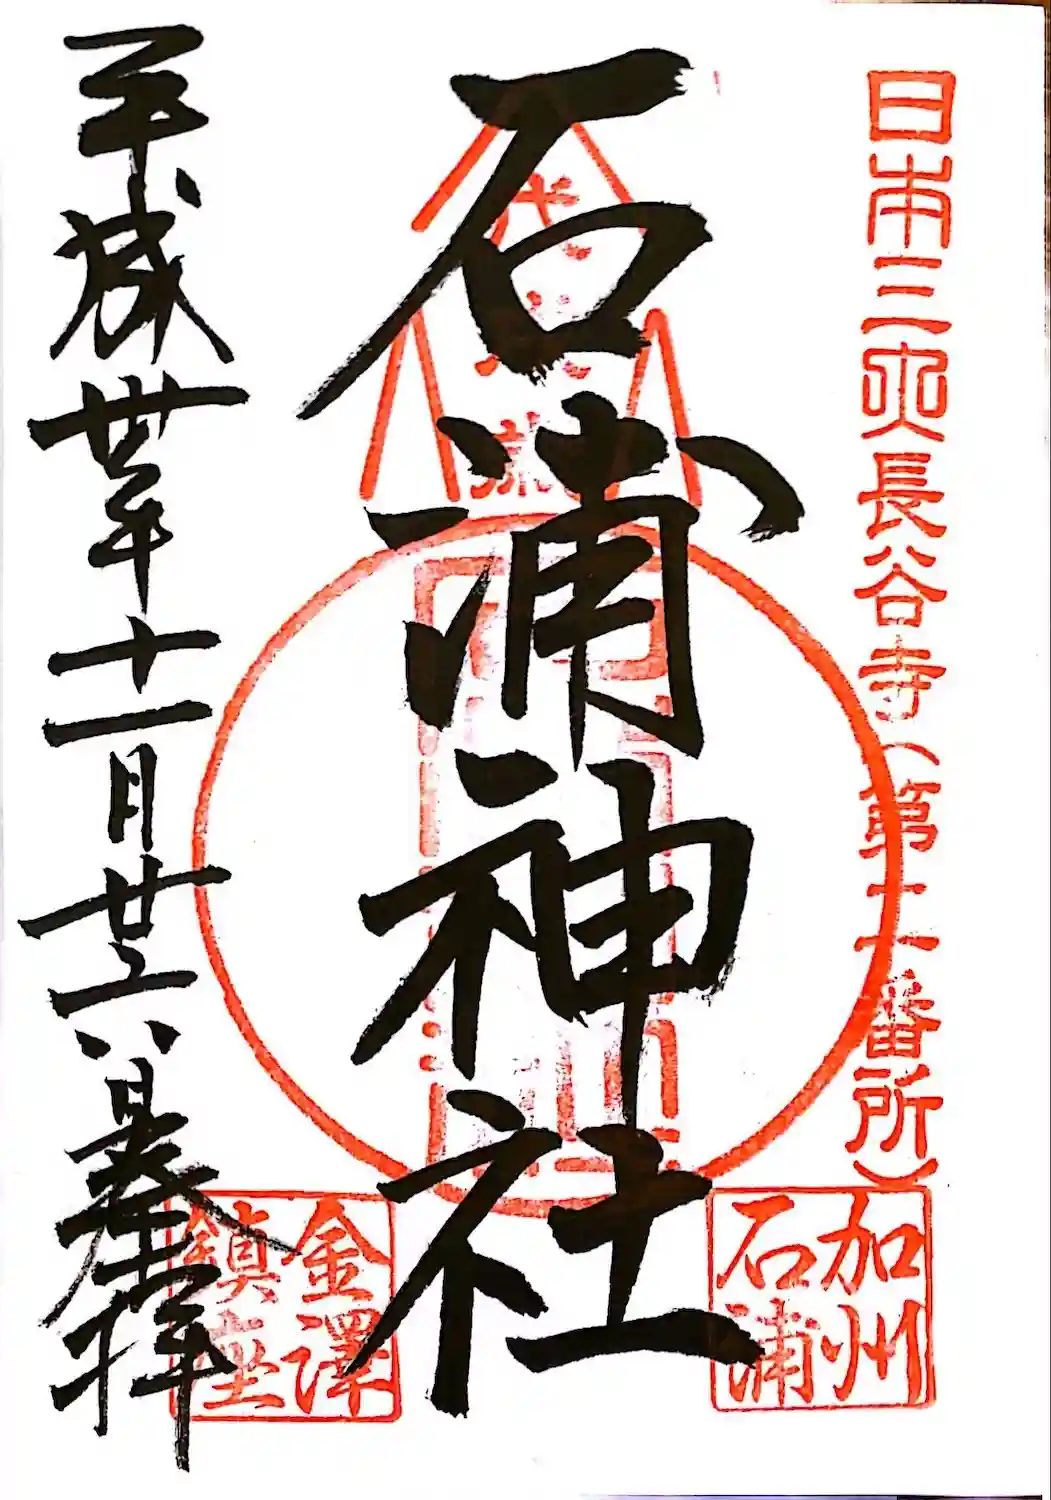 日本三大長谷寺(第 番所)
加州
石浦
石浦神社
金澤
鎮座
平成丗年十一月廿六日奉拝